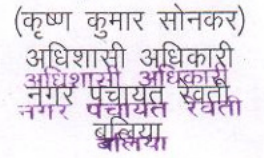 (कृष्ण कुमार सोनकर)
अधिशासी अधिकारी
अधिशासी अधिकारी
नगर पंचायत रेवती
नगर पंचायत रेवती
बलिया
बलिया